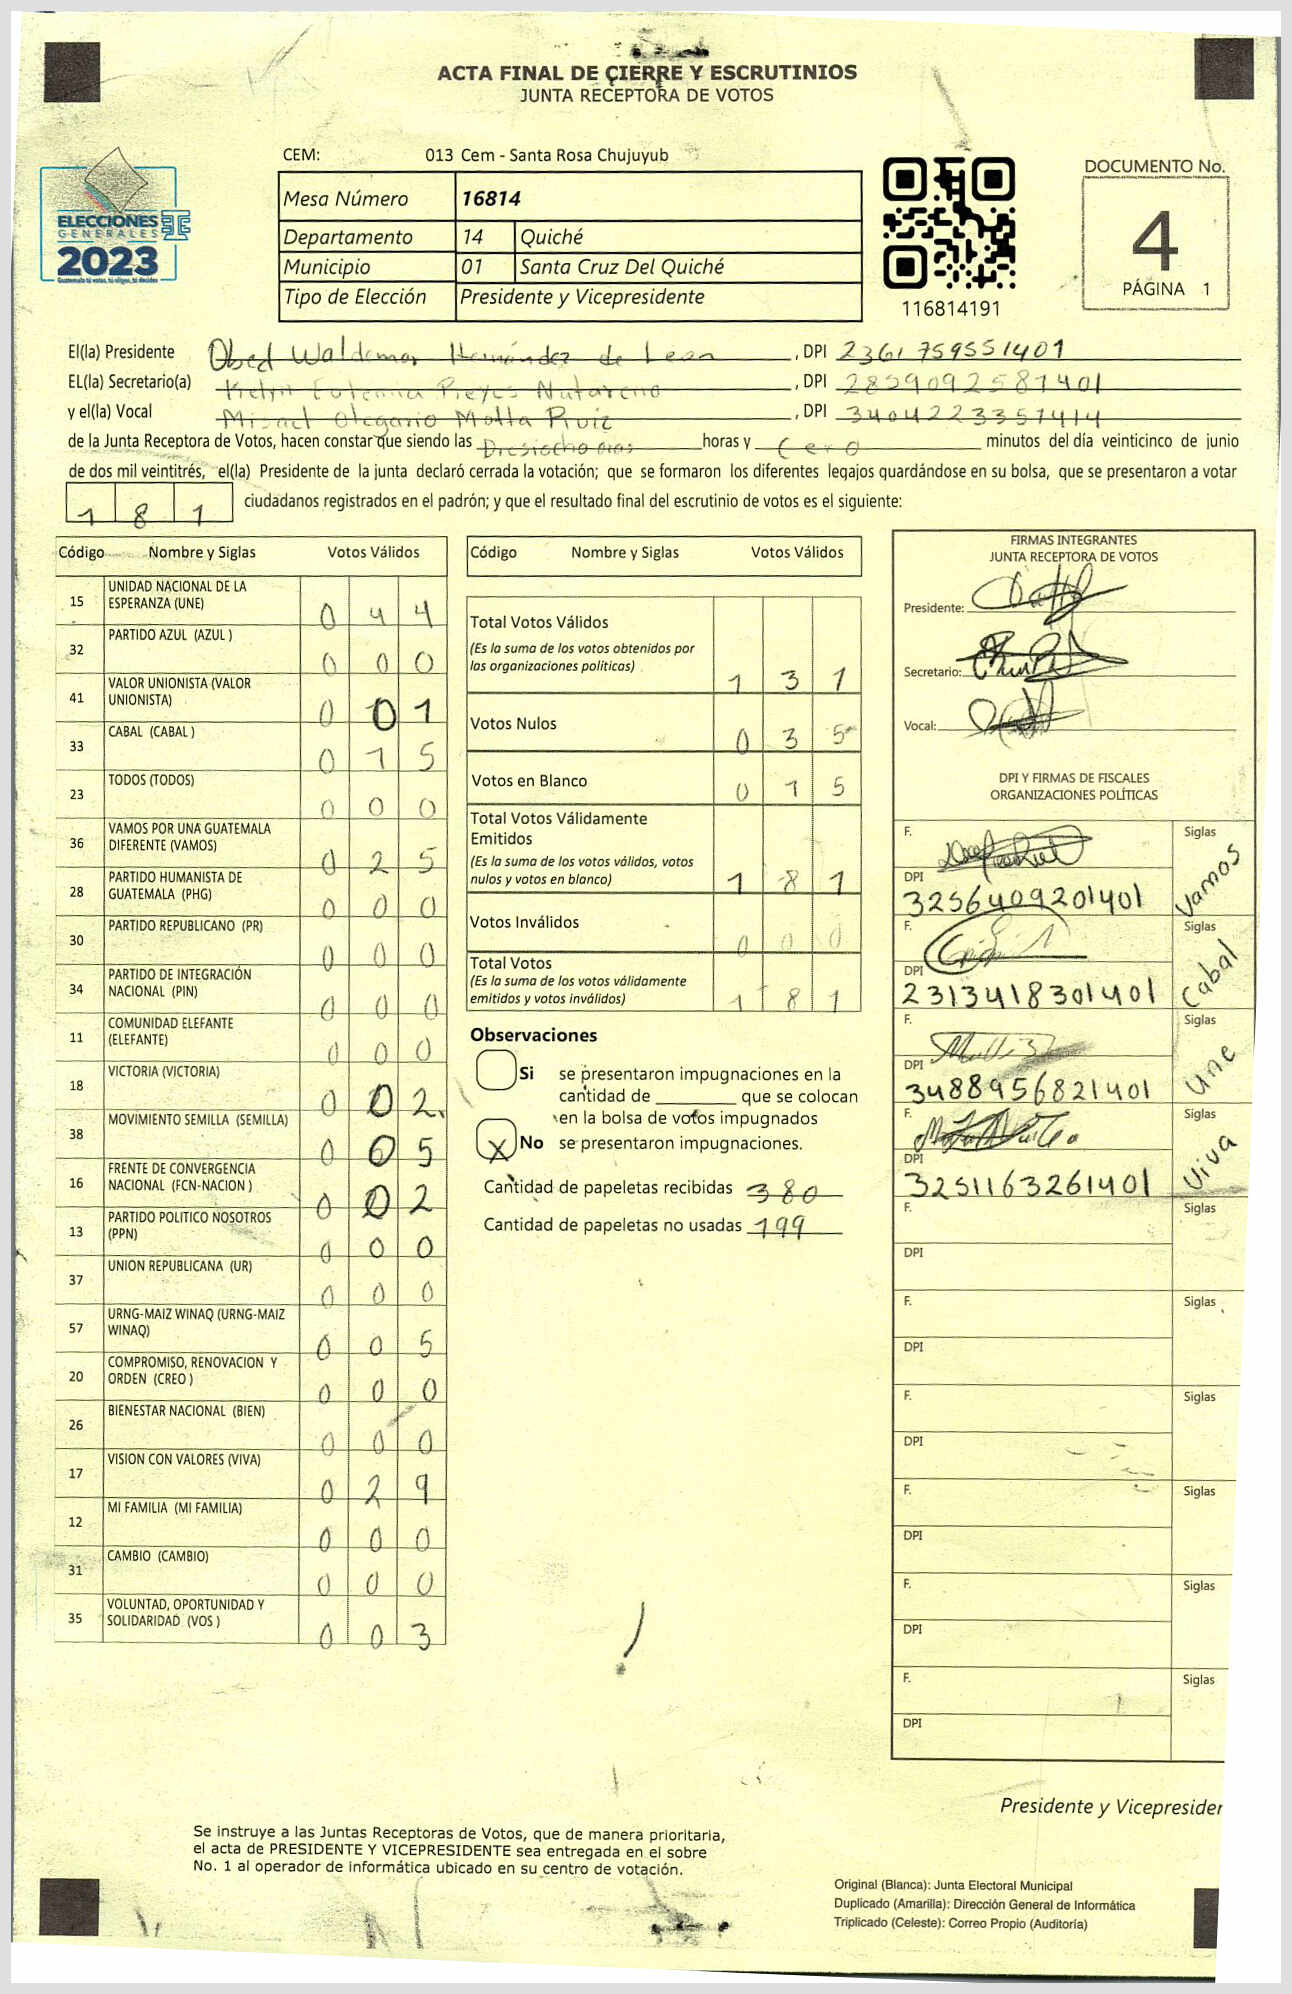 ACTA FINAL DE CIERRE Y ESCRUTINIOS
JUNTA RECEPTORA DE VOTOS
CEM: 013 Cem - Santa Rosa Chujuyub
ELECCIONES
GENERALES
2023
Guatemala tú votas, tú eliges, tú decides
Mesa Número 16814
Departamento 14 Quiché
Municipio 01 Santa Cruz Del Quiché
Tipo de Elección Presidente y Vicepresidente
116814191
DOCUMENTO No.
4
PÁGINA 1
El(la) Presidente Obed Waldemar Hernández de Leon, DPI 2361759551401
EL(la) Secretario(a) Reyes, DPI 2859092587401
y el(la) Vocal Misael Olegario Motta Ruiz, DPI 3404223357414
de la Junta Receptora de Votos, hacen constar que siendo las horas y Cero minutos del día veinticinco de junio
de dos mil veintitrés, el(la) Presidente de la junta declaró cerrada la votación; que se formaron los diferentes legajos quardándose en su bolsa, que se presentaron a votar
181 ciudadanos registrados en el padrón; y que el resultado final del escrutinio de votos es el siguiente:
Código Nombre y Siglas Votos Válidos
15 UNIDAD NACIONAL DE LA ESPERANZA (UNE) 0 4 4
32 PARTIDO AZUL (AZUL ) 0 0 0
41 VALOR UNIONISTA (VALOR UNIONISTA) 0 0 1
33 CABAL (CABAL ) 0 1 5
23 TODOS (TODOS) 0 0 0
36 VAMOS POR UNA GUATEMALA DIFERENTE (VAMOS) 0 2 5
28 PARTIDO HUMANISTA DE GUATEMALA (PHG) 0 0 0
30 PARTIDO REPUBLICANO (PR) 0 0 0
34 PARTIDO DE INTEGRACIÓN NACIONAL (PIN) 0 0 0
11 COMUNIDAD ELEFANTE (ELEFANTE) 0 0 0
18 VICTORIA (VICTORIA) 0 0 2
38 MOVIMIENTO SEMILLA (SEMILLA) 0 0 5
16 FRENTE DE CONVERGENCIA NACIONAL (FCN-NACION ) 0 0 2
13 PARTIDO POLITICO NOSOTROS (PPN) 0 0 0
37 UNION REPUBLICANA (UR) 0 0 0
57 URNG-MAIZ WINAQ (URNG-MAIZ WINAQ) 0 0 5
20 COMPROMISO, RENOVACION Y ORDEN (CREO ) 0 0 0
26 BIENESTAR NACIONAL (BIEN) 0 0 0
17 VISION CON VALORES (VIVA) 0 2 9
12 MI FAMILIA (MI FAMILIA) 0 0 0
31 CAMBIO (CAMBIO) 0 0 0
35 VOLUNTAD, OPORTUNIDAD Y SOLIDARIDAD (VOS ) 0 0 3
Código Nombre y Siglas Votos Válidos
Total Votos Válidos 1 3 1
(Es la suma de los votos obtenidos por
las organizaciones políticas)
Votos Nulos 0 3 5
Votos en Blanco 0 1 5
Total Votos Válidamente
Emitidos
(Es la suma de los votos válidos, votos
nulos y votos en blanco) 1 8 1
Votos Inválidos 0 0 0
Total Votos
(Es la suma de los votos válidamente
emitidos y votos inválidos) 1 8 1
Observaciones
Si se presentaron impugnaciones en la
cantidad de ________ que se colocan
en la bolsa de votos impugnados
X No se presentaron impugnaciones.
Cantidad de papeletas recibidas 380
Cantidad de papeletas no usadas 199
FIRMAS INTEGRANTES
JUNTA RECEPTORA DE VOTOS
Presidente:
Secretario:
Vocal:
DPI Y FIRMAS DE FISCALES
ORGANIZACIONES POLÍTICAS
F. Siglas Vamos
DPI 3256409201401
F. Siglas Cabal
DPI 2313418301401
F. Siglas Une
DPI 3488956821401
F. Siglas Viva
DPI 3251163261401
F. Siglas
DPI
F. Siglas
DPI
F. Siglas
DPI
F. Siglas
DPI
F. Siglas
DPI
F. Siglas
DPI
Presidente y Vicepresiden
Se instruye a las Juntas Receptoras de Votos, que de manera prioritaria,
el acta de PRESIDENTE Y VICEPRESIDENTE sea entregada en el sobre
No. 1 al operador de informática ubicado en su centro de votación.
Original (Blanca): Junta Electoral Municipal
Duplicado (Amarilla): Dirección General de Informática
Triplicado (Celeste): Correo Propio (Auditoría)